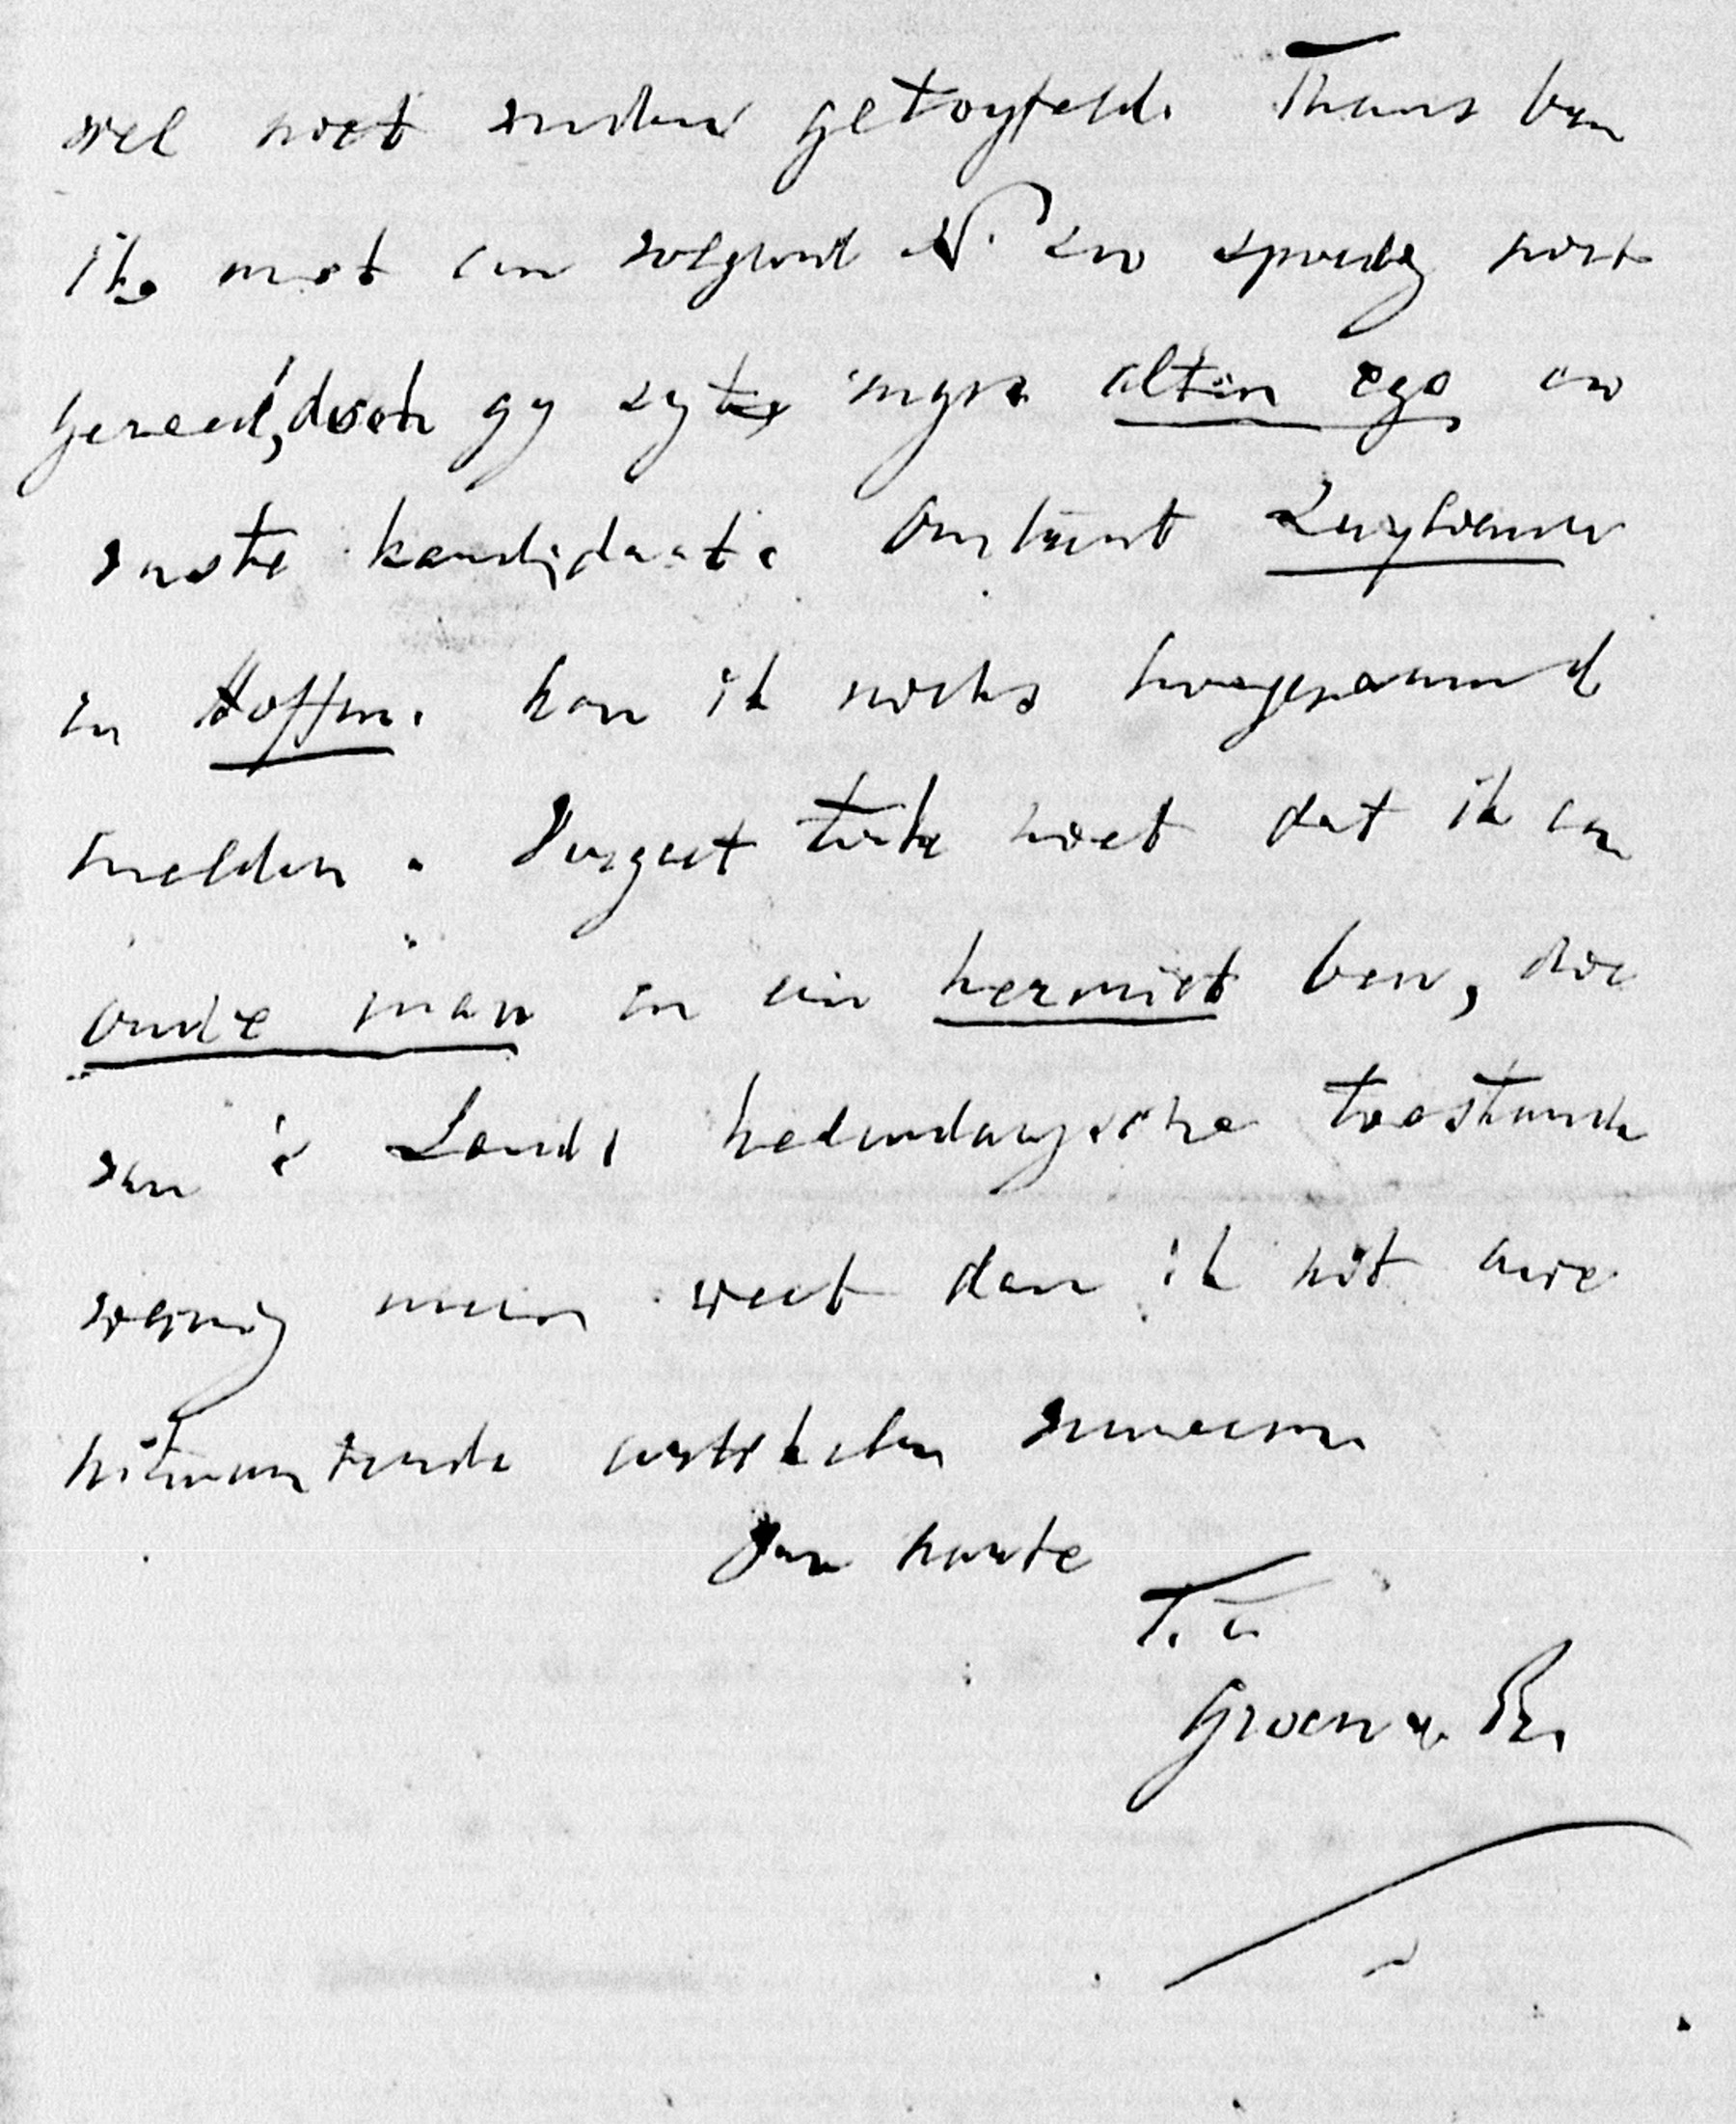 wel niet zouden getwyfeld. Thans ben
ik met een volgend N° zoo spoedig niet
gereed, doch gy zyt myn alter ego en
vaste kandidaat. Omtrent Zuylen
en Hoffm. kan ik niets hoegenaamd
melden. Vergeet toch niet dat ik een
oude man en een hermiet ben, die
van 's Lands hedendaagsche toestand
weinig meer weet dan ik uit uwe
uitmuntende artikelen verneem.
Van harte
T. à.
Groen v. Pr.